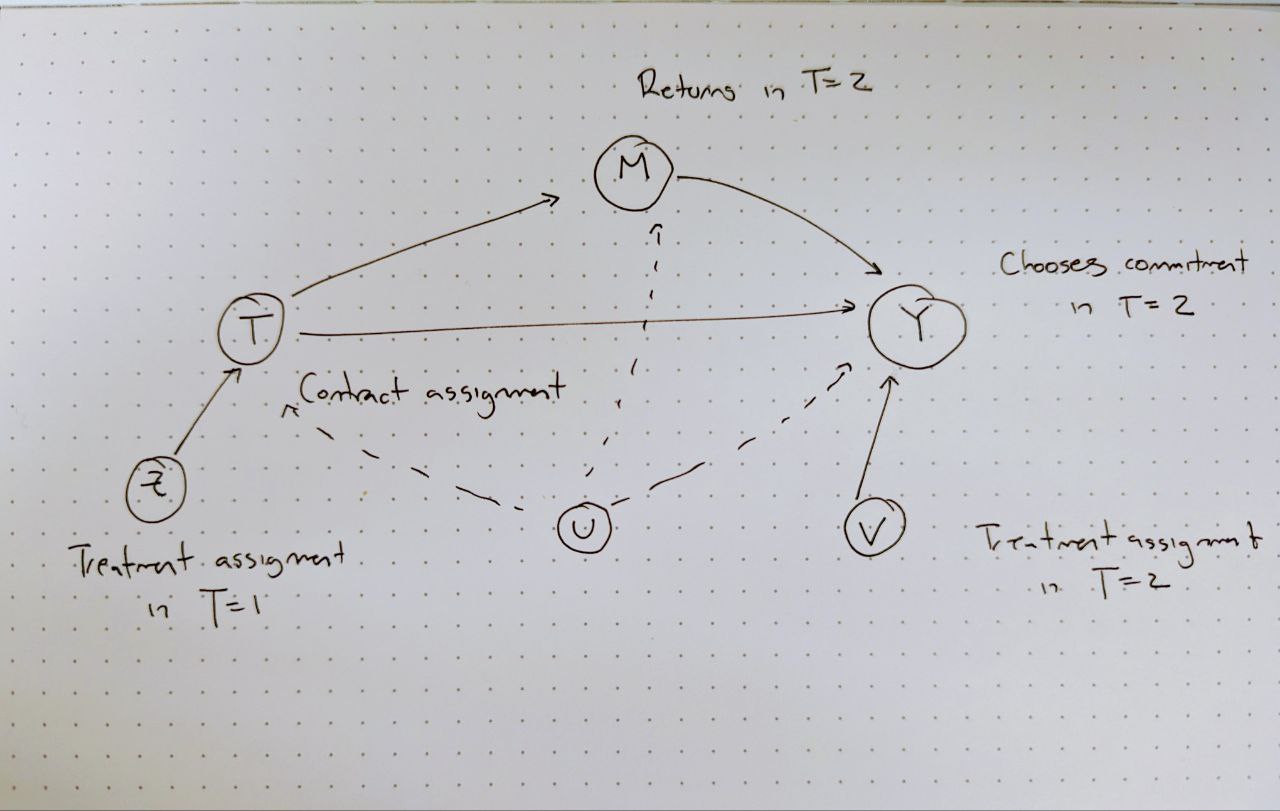 Returns in T=2
M
Chooses commitment
in T=2
T
Y
Contract assignment
Z
U
V
Treatment assignment
in T=1
Treatment assignment
in T=2